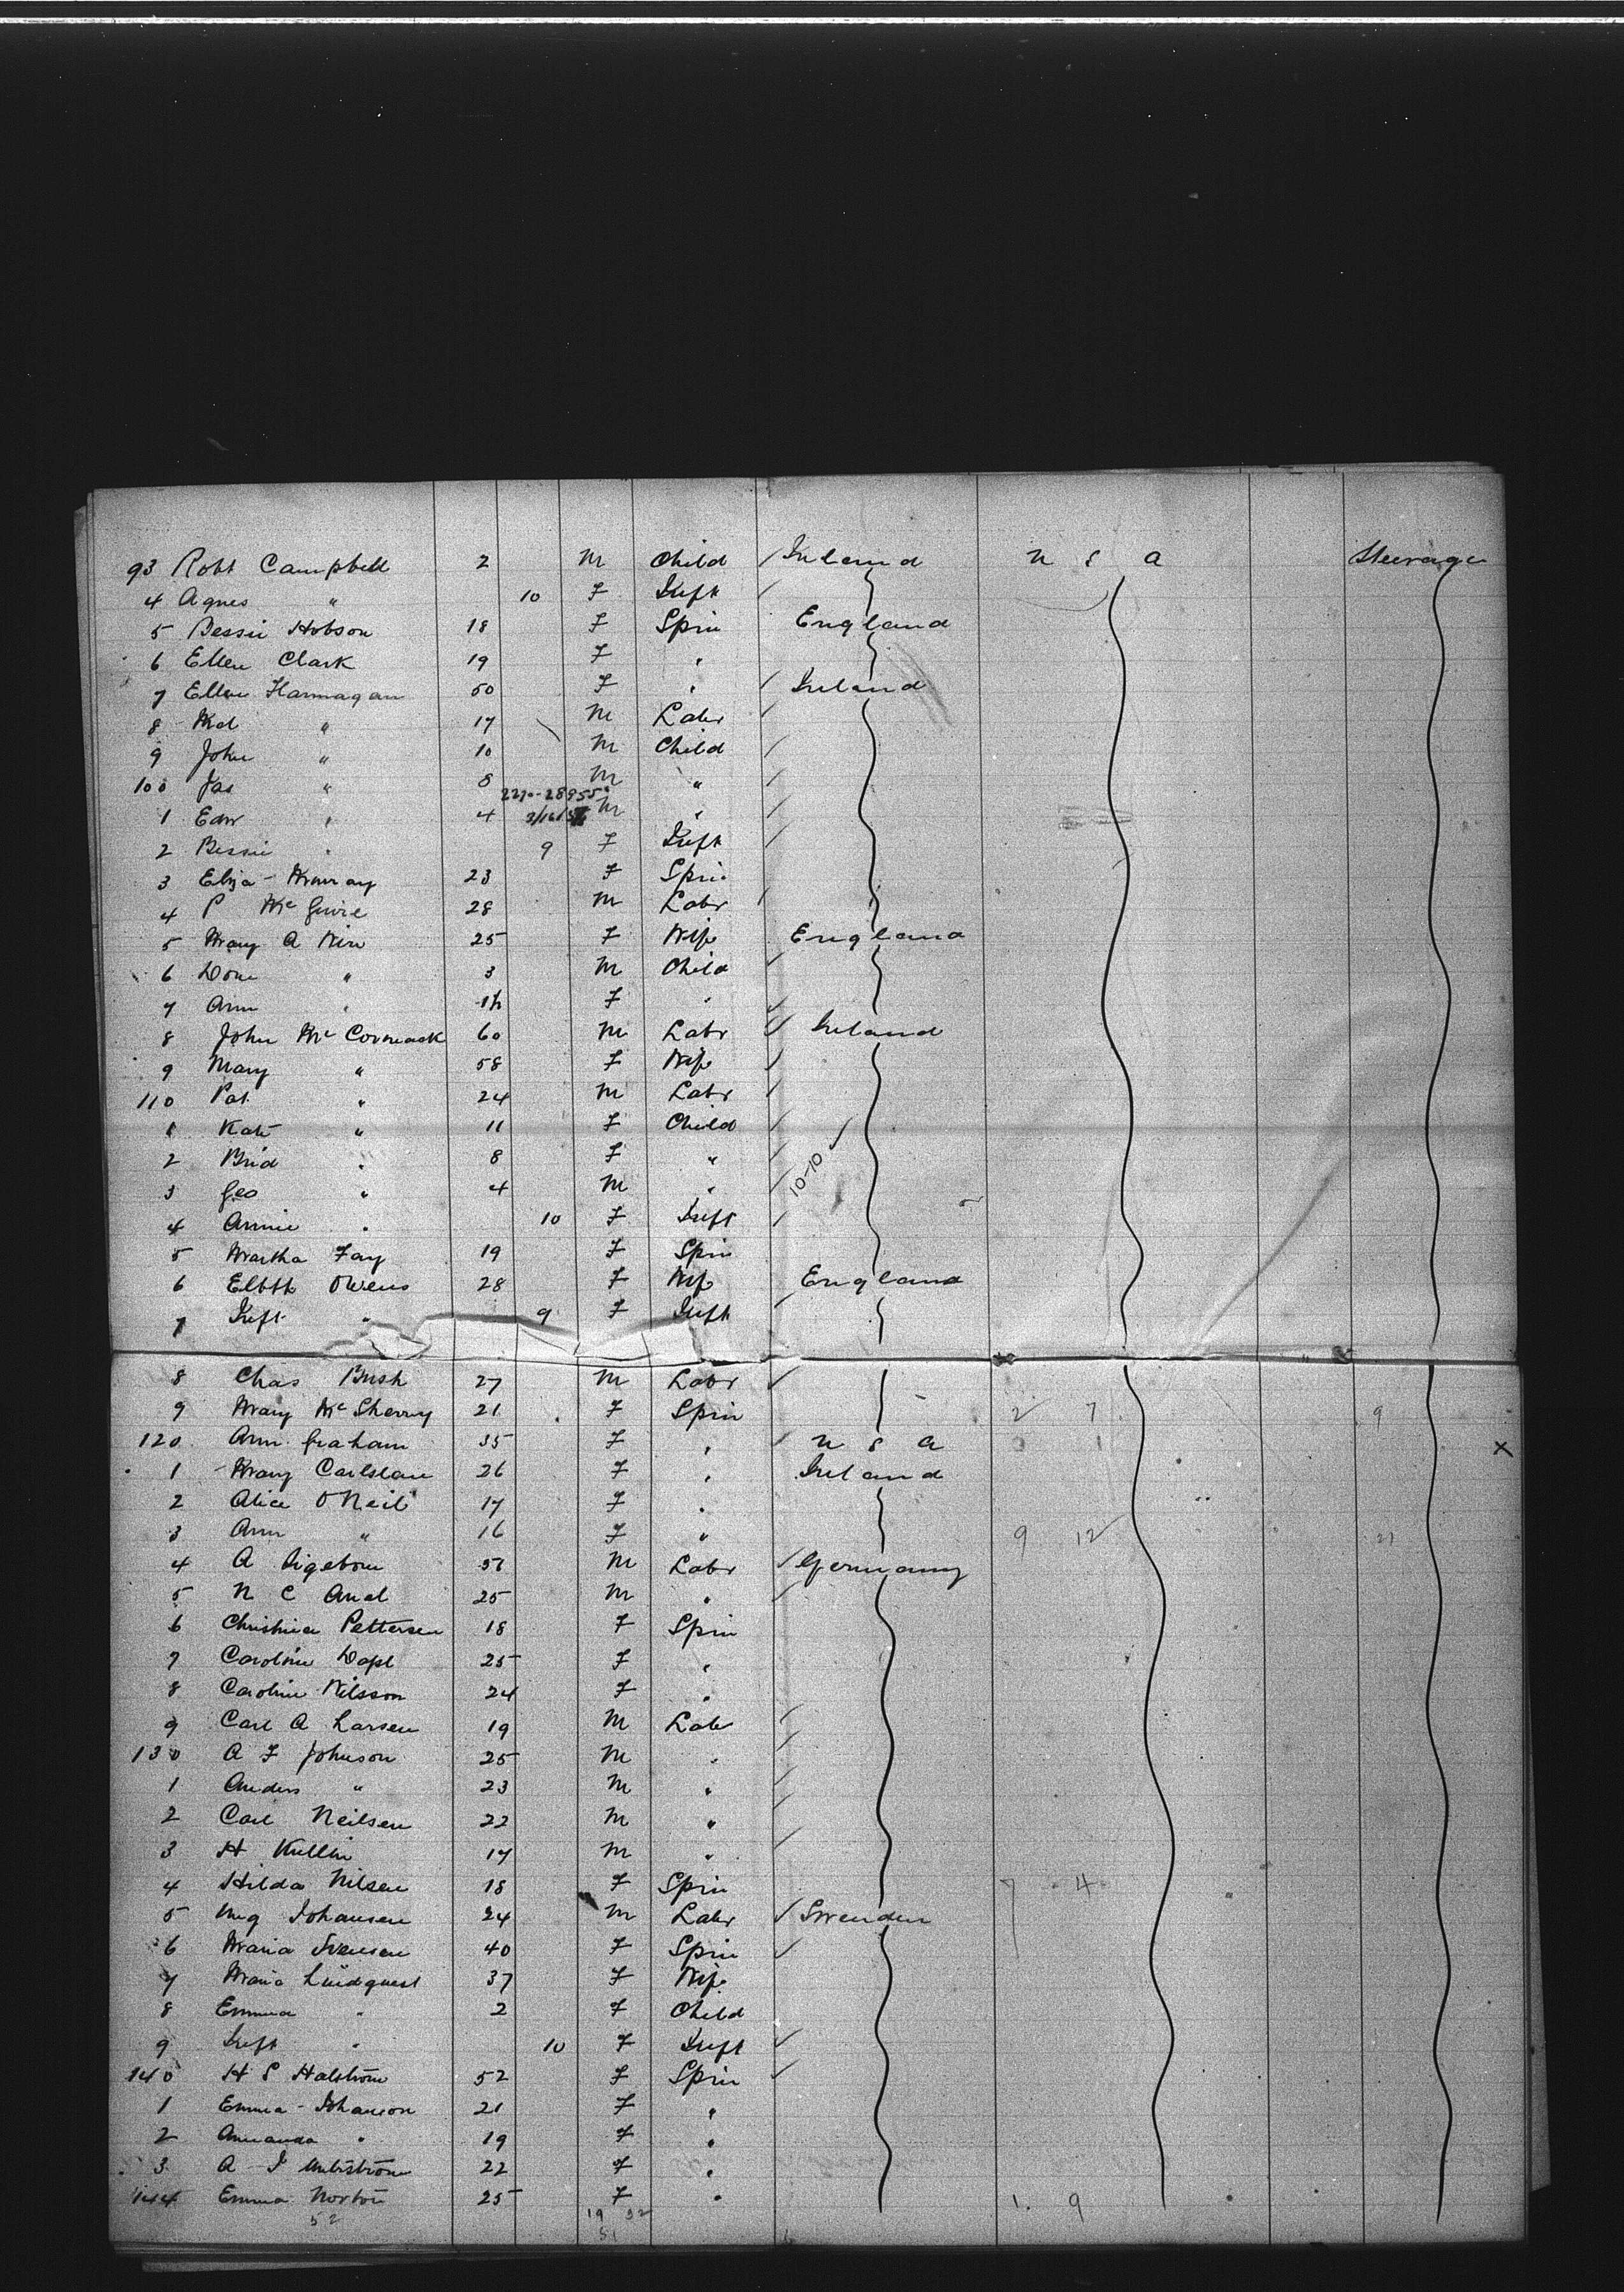 93 Robt Campbell 2 M Child / Ireland U S A Steerage
4 Agnes " 10 F Inft /
5 Bessie Hobson 18 F Spin England
6 Ellen Clark 19 F "
7 Ellen Flannagan 50 F " / Ireland
8 Md " 17 M Labr /
9 John " 10 M Child /
100 Jas " 8 M " /
2270-28955
1 Edw " 4 M " /
2 Bessie " 9 F Inft /
3 Eliza Murray 23 F Spin
4 P McGuire 28 M Labr /
5 Mary A Kirn 25 F Wife England
6 Dom " 3 M Child /
7 Ann " F " /
8 John McCormack 60 M Labr / Ireland
9 Mary " 58 F Wife /
110 Pat " 24 M Labr /
1 Kate " 11 F Child /
2 Brid " 8 F " / 10-10
3 Geo " 4 M " /
4 Annie " 10 F Inft /
5 Martha Fay 19 F Spin
6 Elbth Owens 28 F Wife England
7 Inft " 9 F Inft /
8 Chas Bush 27 M Labr /
9 Mary McSherry 21 F Spin 2 7 9
120 Ann Graham 35 F " / U S A X
1 Mary Carlslan 26 F " Ireland
2 Alice O'Neil 17 F "
3 Ann " 16 F " 9 12 21
4 A Sigebom M Labr / Germany
5 N C Anel 25 M " /
6 Christina Pettersen 18 F Spin
7 Caroline Dapl 25 F "
8 Caroline Nilsson 24 F "
9 Carl A Larsen 19 M Labr /
130 A F Johnson 25 M " /
1 Anders " 23 M " /
2 Carl Neilsen 22 M " /
3 H Kullin 17 M " /
4 Hilda Nilsen 18 F Spin 7 4
5 Johansen 24 M Labr / Sweden
6 Maria Svensen 40 F Spin /
7 Maria Lindquest 37 F Wife
8 Emma " 2 F Child
9 Inft " 10 F Inft /
140 H S Halstrom 52 F Spin /
1 Emma Johanson 21 F "
2 Amanda " 19 F "
3 A J 22 F "
144 Emma Norton 25 F " 1 9
52 19 32
51